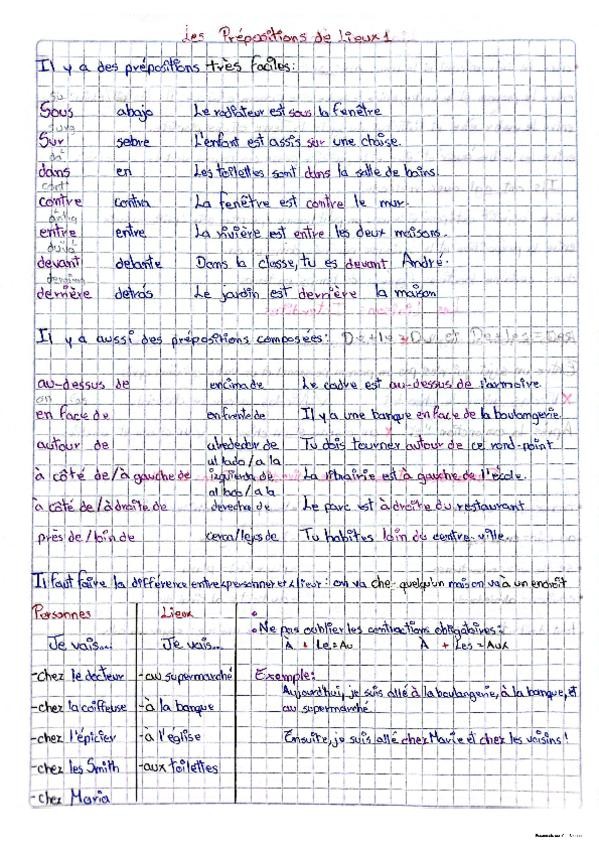 Les Prépositions de Lieux 1
Il y a des prépositions très faciles:
Su
Sous abajo Le radiateur est sous la fenêtre
Sur sobre L'enfant est assis sur une chaise.
dans en Les toilettes sont dans la salle de bains.
contre contra La fenêtre est contre le mur.
entre entre La rivière est entre les deux maisons.
devant delante Dans la classe, tu es devant André.
derrière detrás Le jardin est derrière la maison
Il y a aussi des prépositions composées: De + le = Du et De + les = Des
au-dessus de encima de Le cadre est au-dessus de l'armoire.
en face de enfrente de Il y a une banque en face de la boulangerie.
autour de alrededor de Tu dois tourner autour de ce rond-point
à côté de/à gauche de al lado/a la izquierda de La librairie est à gauche de l'école.
à côté de/à droite de al lado/a la derecha de Le parc est à droite du restaurant
près de/loin de cerca/lejos de Tu habites loin du centre-ville.
Il faut faire la différence entre personner et lieur: on va che quelqu'un mais on va à un endroit
Personnes Lieux
Je vais... Je vais...
-chez le docteur -au supermarché
-chez la coiffeuse -à la banque
-chez l'épicier -à l'église
-chez les Smith -aux toilettes
-chez Maria
Ne pas oublier les contractions obligatoires:
À + Le = Au À + Les = Aux
Exemple:
Aujourd'hui, je suis allé à la boulangerie, à la banque, et
au supermarché.
Ensuite, je suis allé chez Marie et chez les voisins!